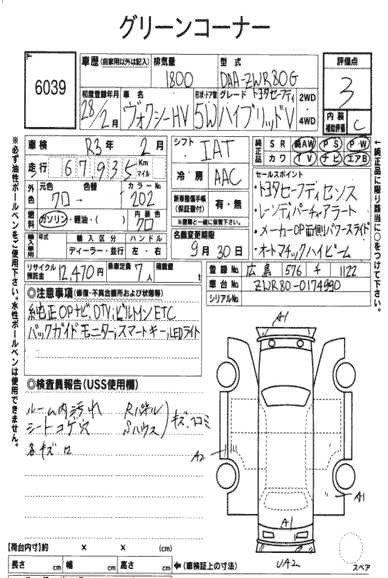 グリーンコーナー
6039
車歴 (自家用以外は記入)
排気量 1800
型式 DAA-ZWR80G
評価点 3
初度登録年月 28/2月
ヴォクシーHV
形状・ドア数 5W
グレード トヨタセーフティ
ハイブリッドV
2WD
4WD
内装補助評価 C
車検 R3年 2月
シフト IAT
純正品 SR 純AW PS PW
カワ TV ナビ エアB
走行 67935 Km マイル
冷房 AAC
セールスポイント
・トヨタセーフティセンス
・レーンディパーチャアラート
・メーカーOP両側パワースライド
・オートマチックハイビーム
外色 クロ→
色替
カラーNo. 202
燃料 ガソリン・軽油・( )
内装色 クロ
新車整備手帳 (保証書付) 有・無
輸入車
輸入区分 ディーラー・並行
ハンドル 左・右
名義変更期限 9月30日
リサイクル預託金 12,470円
乗車定員 7人
積載量 t
登録No. 広島 576 チ 1122
車台No. ZWR80-0174990
シリアルNo.
◎注意事項 (修復・不具合箇所および状態等)
純正OPナビ,DTV,ビルトインETC
バックガイドモニター,スマートキー,LEDライト
◎検査員報告 (USS使用欄)
ルーム内汚れ Rパネル
シートコゲ穴 Sハウス キズ・コミ
各キズ
A1
A2
A1
A1
A1
UA2
スペア
【荷台内寸】 × × (cm)
長さ cm 幅 cm 高さ cm ←(車検証上の寸法)
※必ず油性ボールペンをご使用下さい。水性ボールペンは使用できません。
純正品に限り該当に○をつけて下さい。